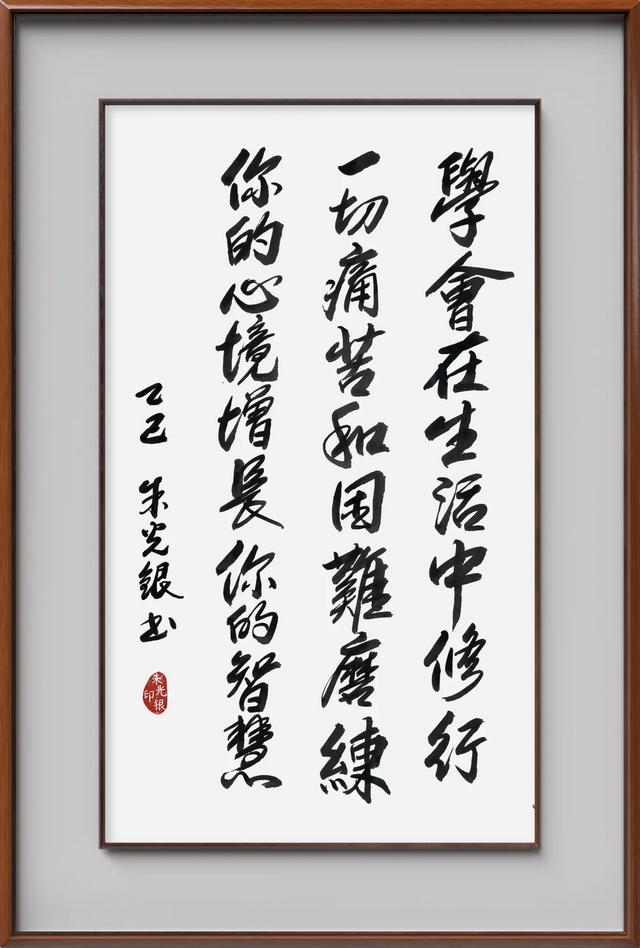 學會在生活中修行
一切痛苦和困難磨練
你的心境增長你的智慧
乙巳 朱光银书
朱光银印